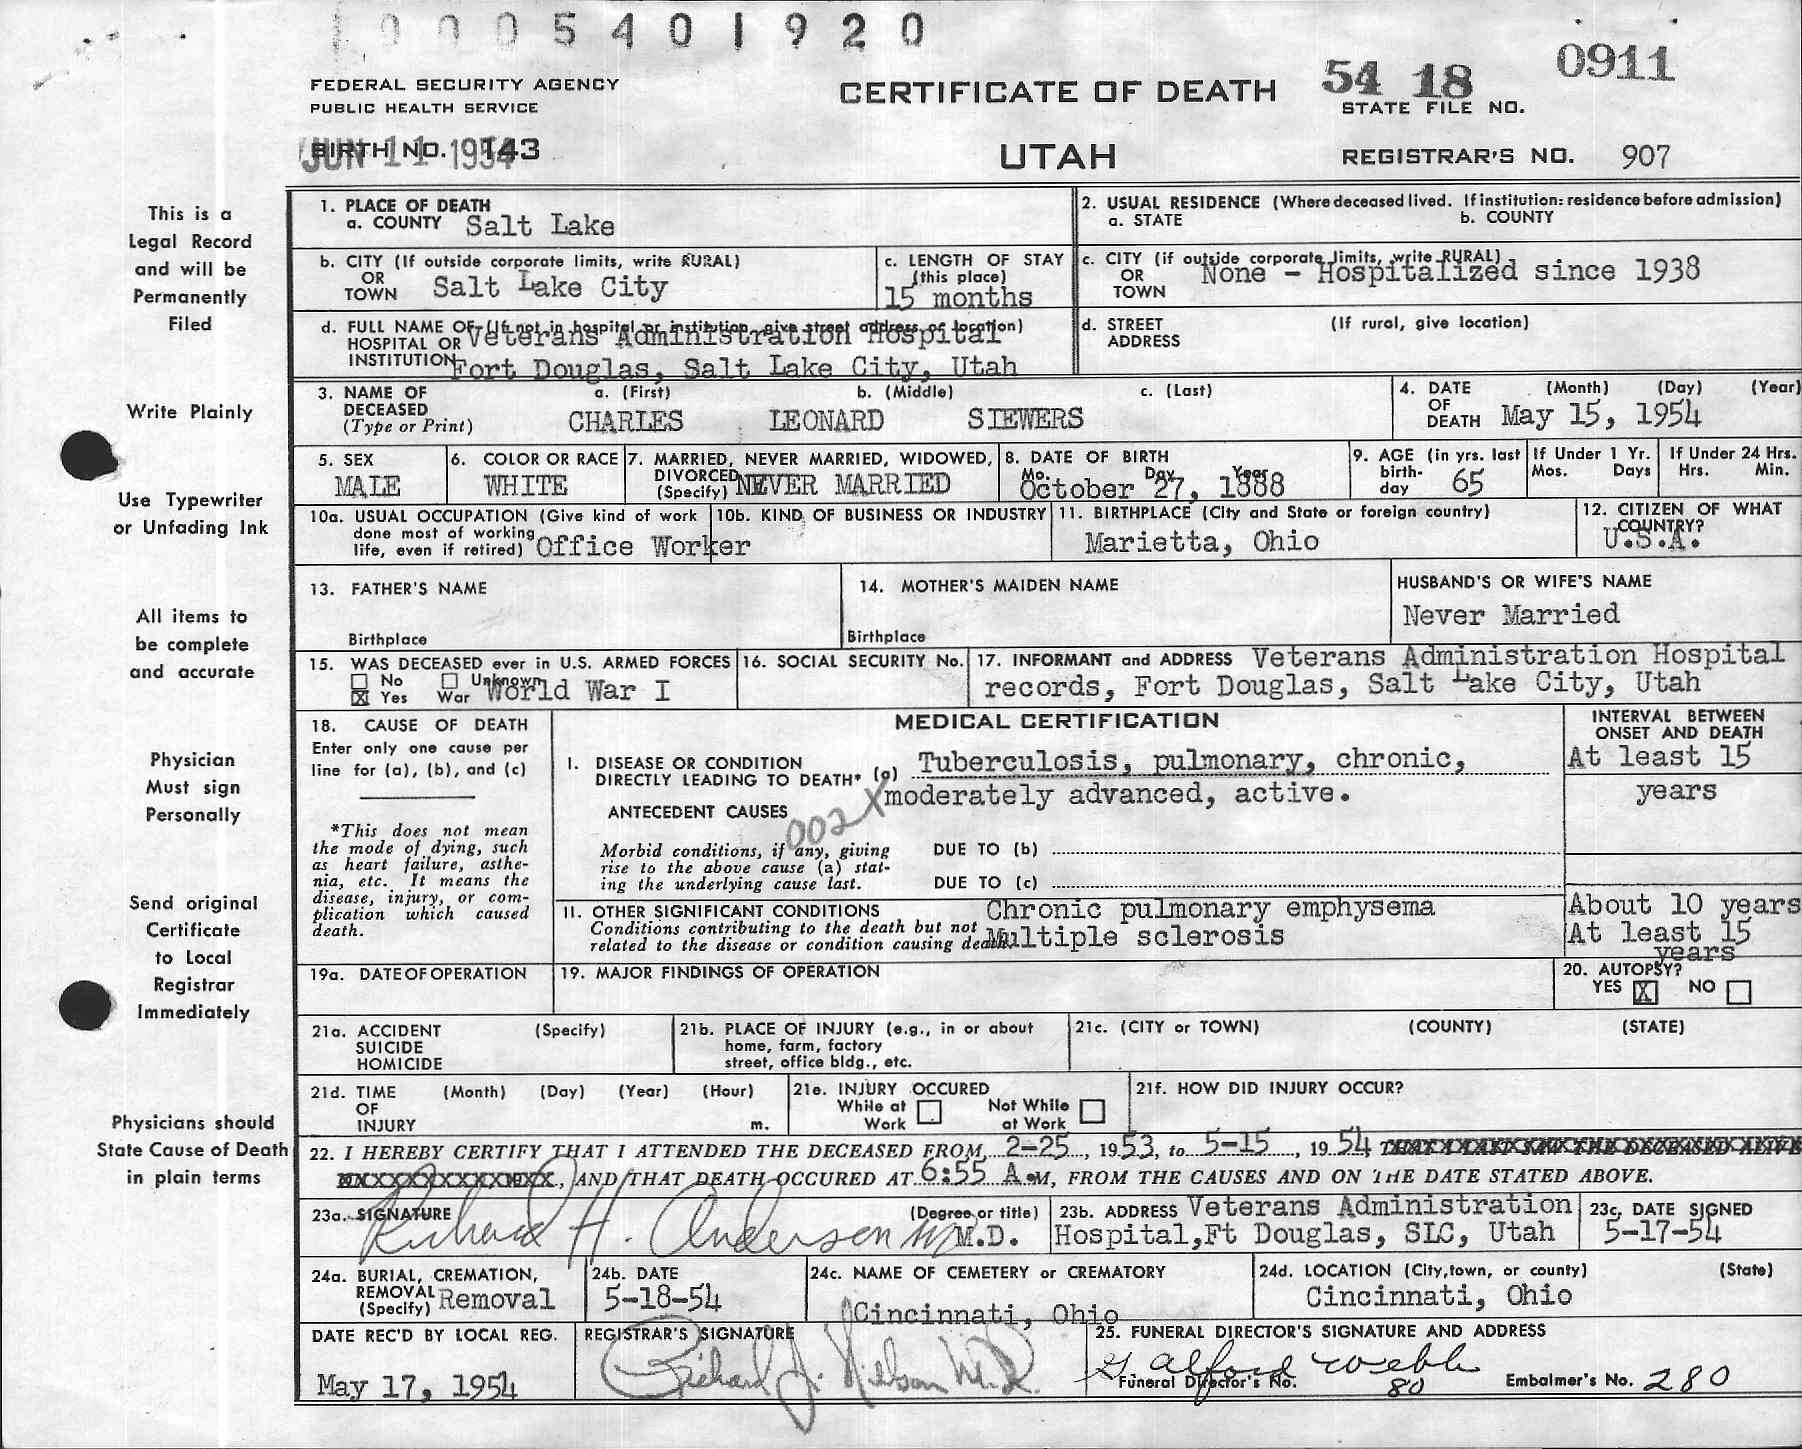 1 0 0 0 5 4 0 1 9 2 0
FEDERAL SECURITY AGENCY
PUBLIC HEALTH SERVICE
CERTIFICATE OF DEATH
54 18 0911
STATE FILE NO.
BIRTH NO. 143
JUN 11 1954
UTAH
REGISTRAR'S NO. 907
This is a
Legal Record
and will be
Permanently
Filed
Write Plainly
Use Typewriter
or Unfading Ink
All items to
be complete
and accurate
Physician
Must sign
Personally
Send original
Certificate
to Local
Registrar
Immediately
Physicians should
State Cause of Death
in plain terms
1. PLACE OF DEATH
a. COUNTY Salt Lake
2. USUAL RESIDENCE (Where deceased lived. If institution: residence before admission)
a. STATE b. COUNTY
b. CITY (If outside corporate limits, write RURAL)
OR
TOWN Salt Lake City
c. LENGTH OF STAY
(this place)
15 months
c. CITY (if outside corporate limits, write RURAL)
OR
TOWN
None - Hospitalized since 1938
d. FULL NAME OF (If not in hospital or institution, give street address or location)
HOSPITAL OR Veterans Administration Hospital
INSTITUTION Fort Douglas, Salt Lake City, Utah
d. STREET (If rural, give location)
ADDRESS
3. NAME OF a. (First) b. (Middle) c. (Last)
DECEASED
(Type or Print) CHARLES LEONARD SIEWERS
4. DATE (Month) (Day) (Year)
OF
DEATH May 15, 1954
5. SEX
MALE
6. COLOR OR RACE
WHITE
7. MARRIED, NEVER MARRIED, WIDOWED,
DIVORCED
(Specify) NEVER MARRIED
8. DATE OF BIRTH
Mo. Day Year
October 27, 1888
9. AGE (in yrs. last
birth-
day 65
If Under 1 Yr.
Mos. Days
If Under 24 Hrs.
Hrs. Min.
10a. USUAL OCCUPATION (Give kind of work
done most of working
life, even if retired) Office Worker
10b. KIND OF BUSINESS OR INDUSTRY
11. BIRTHPLACE (City and State or foreign country)
Marietta, Ohio
12. CITIZEN OF WHAT
COUNTRY?
U.S.A.
13. FATHER'S NAME
Birthplace
14. MOTHER'S MAIDEN NAME
Birthplace
HUSBAND'S OR WIFE'S NAME
Never Married
15. WAS DECEASED ever in U.S. ARMED FORCES
No Unknown
X Yes War World War I
16. SOCIAL SECURITY No.
17. INFORMANT and ADDRESS Veterans Administration Hospital
records, Fort Douglas, Salt Lake City, Utah
18. CAUSE OF DEATH
Enter only one cause per
line for (a), (b), and (c)
*This does not mean
the mode of dying, such
as heart failure, asthe-
nia, etc. It means the
disease, injury, or com-
plication which caused
death.
MEDICAL CERTIFICATION
INTERVAL BETWEEN
ONSET AND DEATH
I. DISEASE OR CONDITION
DIRECTLY LEADING TO DEATH* (a) Tuberculosis, pulmonary, chronic,
moderately advanced, active.
At least 15
years
ANTECEDENT CAUSES
002X
Morbid conditions, if any, giving
rise to the above cause (a) stat-
ing the underlying cause last.
DUE TO (b)
DUE TO (c)
II. OTHER SIGNIFICANT CONDITIONS
Conditions contributing to the death but not
related to the disease or condition causing death.
Chronic pulmonary emphysema
Multiple sclerosis
About 10 years
At least 15
years
19a. DATE OF OPERATION
19. MAJOR FINDINGS OF OPERATION
20. AUTOPSY?
YES X NO
21a. ACCIDENT (Specify)
SUICIDE
HOMICIDE
21b. PLACE OF INJURY (e.g., in or about
home, farm, factory
street, office bldg., etc.
21c. (CITY or TOWN) (COUNTY) (STATE)
21d. TIME (Month) (Day) (Year) (Hour)
OF
INJURY m.
21e. INJURY OCCURED
While at Not While
Work at Work
21f. HOW DID INJURY OCCUR?
22. I HEREBY CERTIFY THAT I ATTENDED THE DECEASED FROM 2-25, 1953, to 5-15, 1954 THAT I LAST SAW THE DECEASED ALIVE
XXXXXXXXXXXXXXX, AND THAT DEATH OCCURED AT 6:55 A.M, FROM THE CAUSES AND ON THE DATE STATED ABOVE.
23a. SIGNATURE (Degree or title)
Richard H. Anderson MD M.D.
23b. ADDRESS Veterans Administration
Hospital, Ft Douglas, SLC, Utah
23c. DATE SIGNED
5-17-54
24a. BURIAL, CREMATION,
REMOVAL
(Specify) Removal
24b. DATE
5-18-54
24c. NAME OF CEMETERY or CREMATORY
Cincinnati, Ohio
24d. LOCATION (City, town, or county) (State)
Cincinnati, Ohio
DATE REC'D BY LOCAL REG.
May 17, 1954
REGISTRAR'S SIGNATURE
Richard J. Nielson M.D.
25. FUNERAL DIRECTOR'S SIGNATURE AND ADDRESS
Alford Webb
Funeral Director's No. 80
Embalmer's No. 280